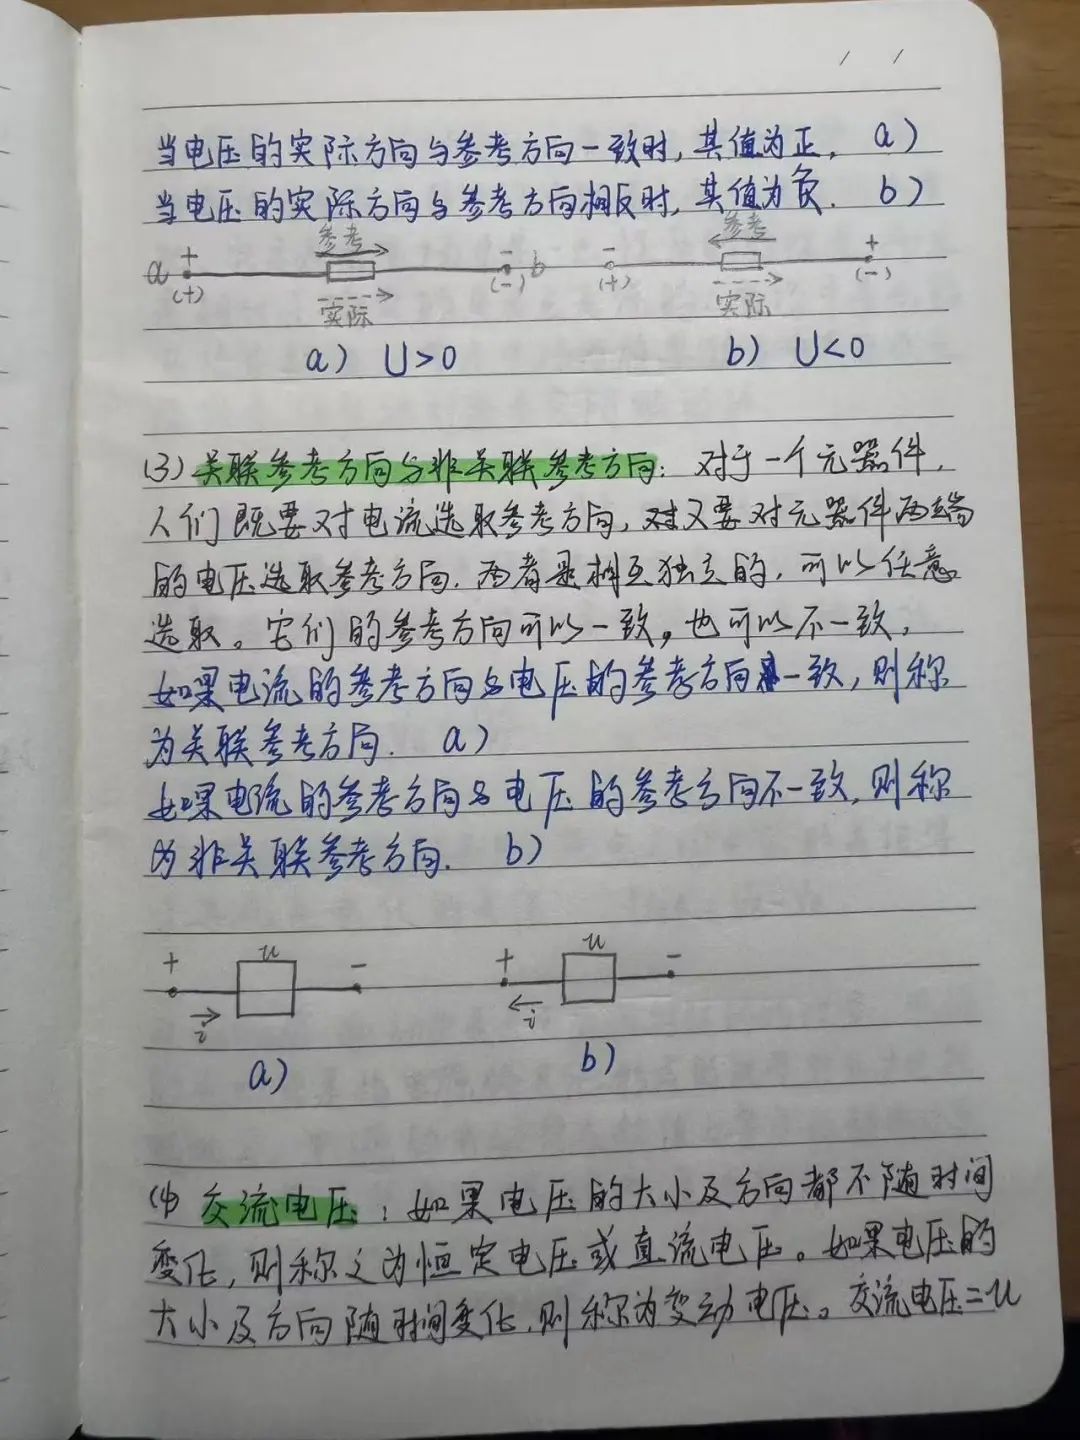 当电压的实际方向与参考方向一致时，其值为正. a)
当电压的实际方向与参考方向相反时，其值为负. b)
参考 参考
a + - b - +
(+) (-) (+) (-)
实际 实际
a) U>0 b) U<0
(3) 关联参考方向与非关联参考方向：对于一个元器件，
人们既要对电流选取参考方向，又要对元器件两端
的电压选取参考方向. 两者是相互独立的，可以任意
选取。它们的参考方向可以一致，也可以不一致，
如果电流的参考方向与电压的参考方向一致，则称
为关联参考方向. a)
如果电流的参考方向与电压的参考方向不一致，则称
为非关联参考方向. b)
+ u - + u -
i i
a) b)
(4) 交流电压：如果电压的大小及方向都不随时间
变化，则称之为恒定电压或直流电压。如果电压的
大小及方向随时间变化，则称为变动电压。交流电压=u